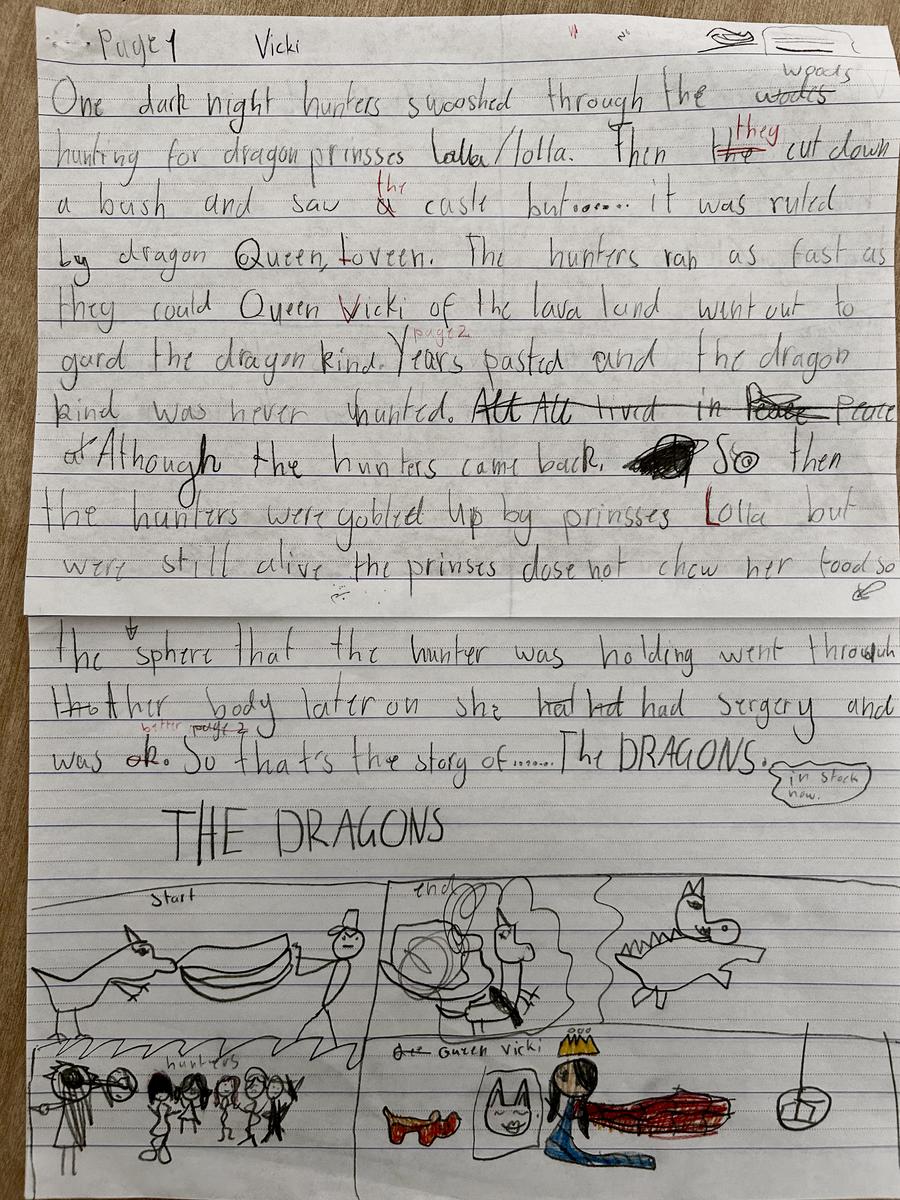 Page 1 Vicki
woods
One dark night hunters swooshed through the wodes
they
hunting for dragon prinsses Lalla/lolla. Then the cut down
the
a bush and saw a casle but....... it was ruled
by dragon Queen, Loveen. The hunters ran as fast as
they could Queen Vicki of the lava land went out to
page 2
gard the dragon kind. Years pasted and the dragon
kind was never hunted. All All lived in Peace Peace
at Athough the hunters came back. So then
the hunters were gobled up by prinsses Lolla but
were still alive the prinses dose not chew her food so
the sphere that the hunter was holding went through
her body later on she hat hot had sergery and
better page 2
was ok. So that's the story of....... The DRAGONS.
in stock
now.
THE DRAGONS
start
end
hunters
Queen Vicki